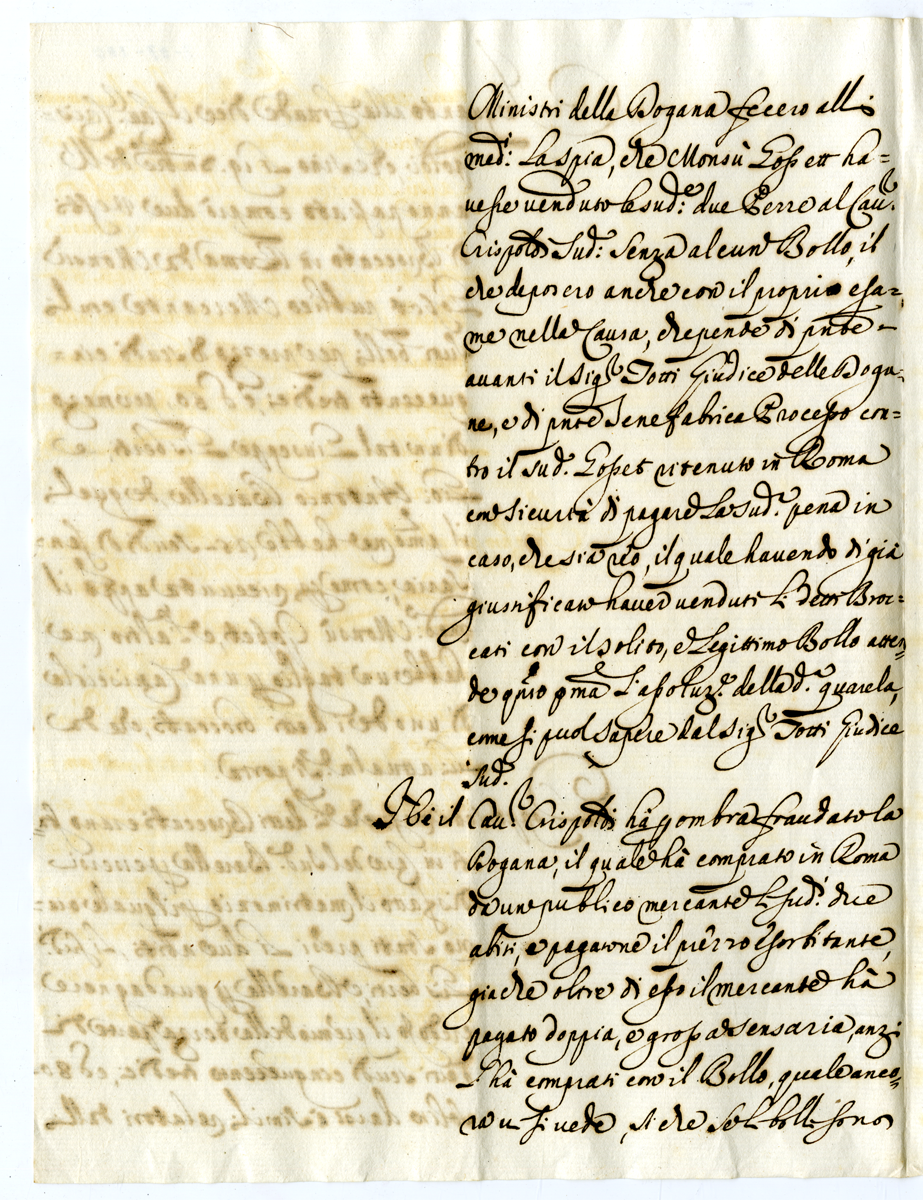 Ministri della Dogana fecero alli
med:i La spia, che Monsù Gosset ha=
uesse uenduto le sud:e due Pezze al Cau:r
Crispoldi Sud:o senza alcun Bollo, il
che deposero anche con il proprio esa=
me nella Causa, che pende di pnte
auanti il Sig:r Totti Giudice delle Doga=
ne, e di pnte se ne fabrica Processo con=
tro il sud:o Gosset ritenuto in Roma
con sicurtà di pagare la sud:a pena in
caso, che sia reo, il quale hauendo di già
giustificato hauer uenduti li detti Broc=
cati con il solito, e legittimo Bollo atten=
de qnto pma l'assoluz:e della d:a querela,
come si puol sapere dal Sig:r Totti Giudice
sud:o
Il Cau:r Crispoldi hà fraudato la
Dogana, il quale hà comprato in Roma
da un publico mercante li sud:i due
abiti, e pagatone il prezzo esorbitante,
già che oltre di esso il mercante hà
pagato doppia, e grossa sensaria, anzi
l'hà comprati con il Bollo, quale anco=
ra ui si uede, si che se li bolli sono